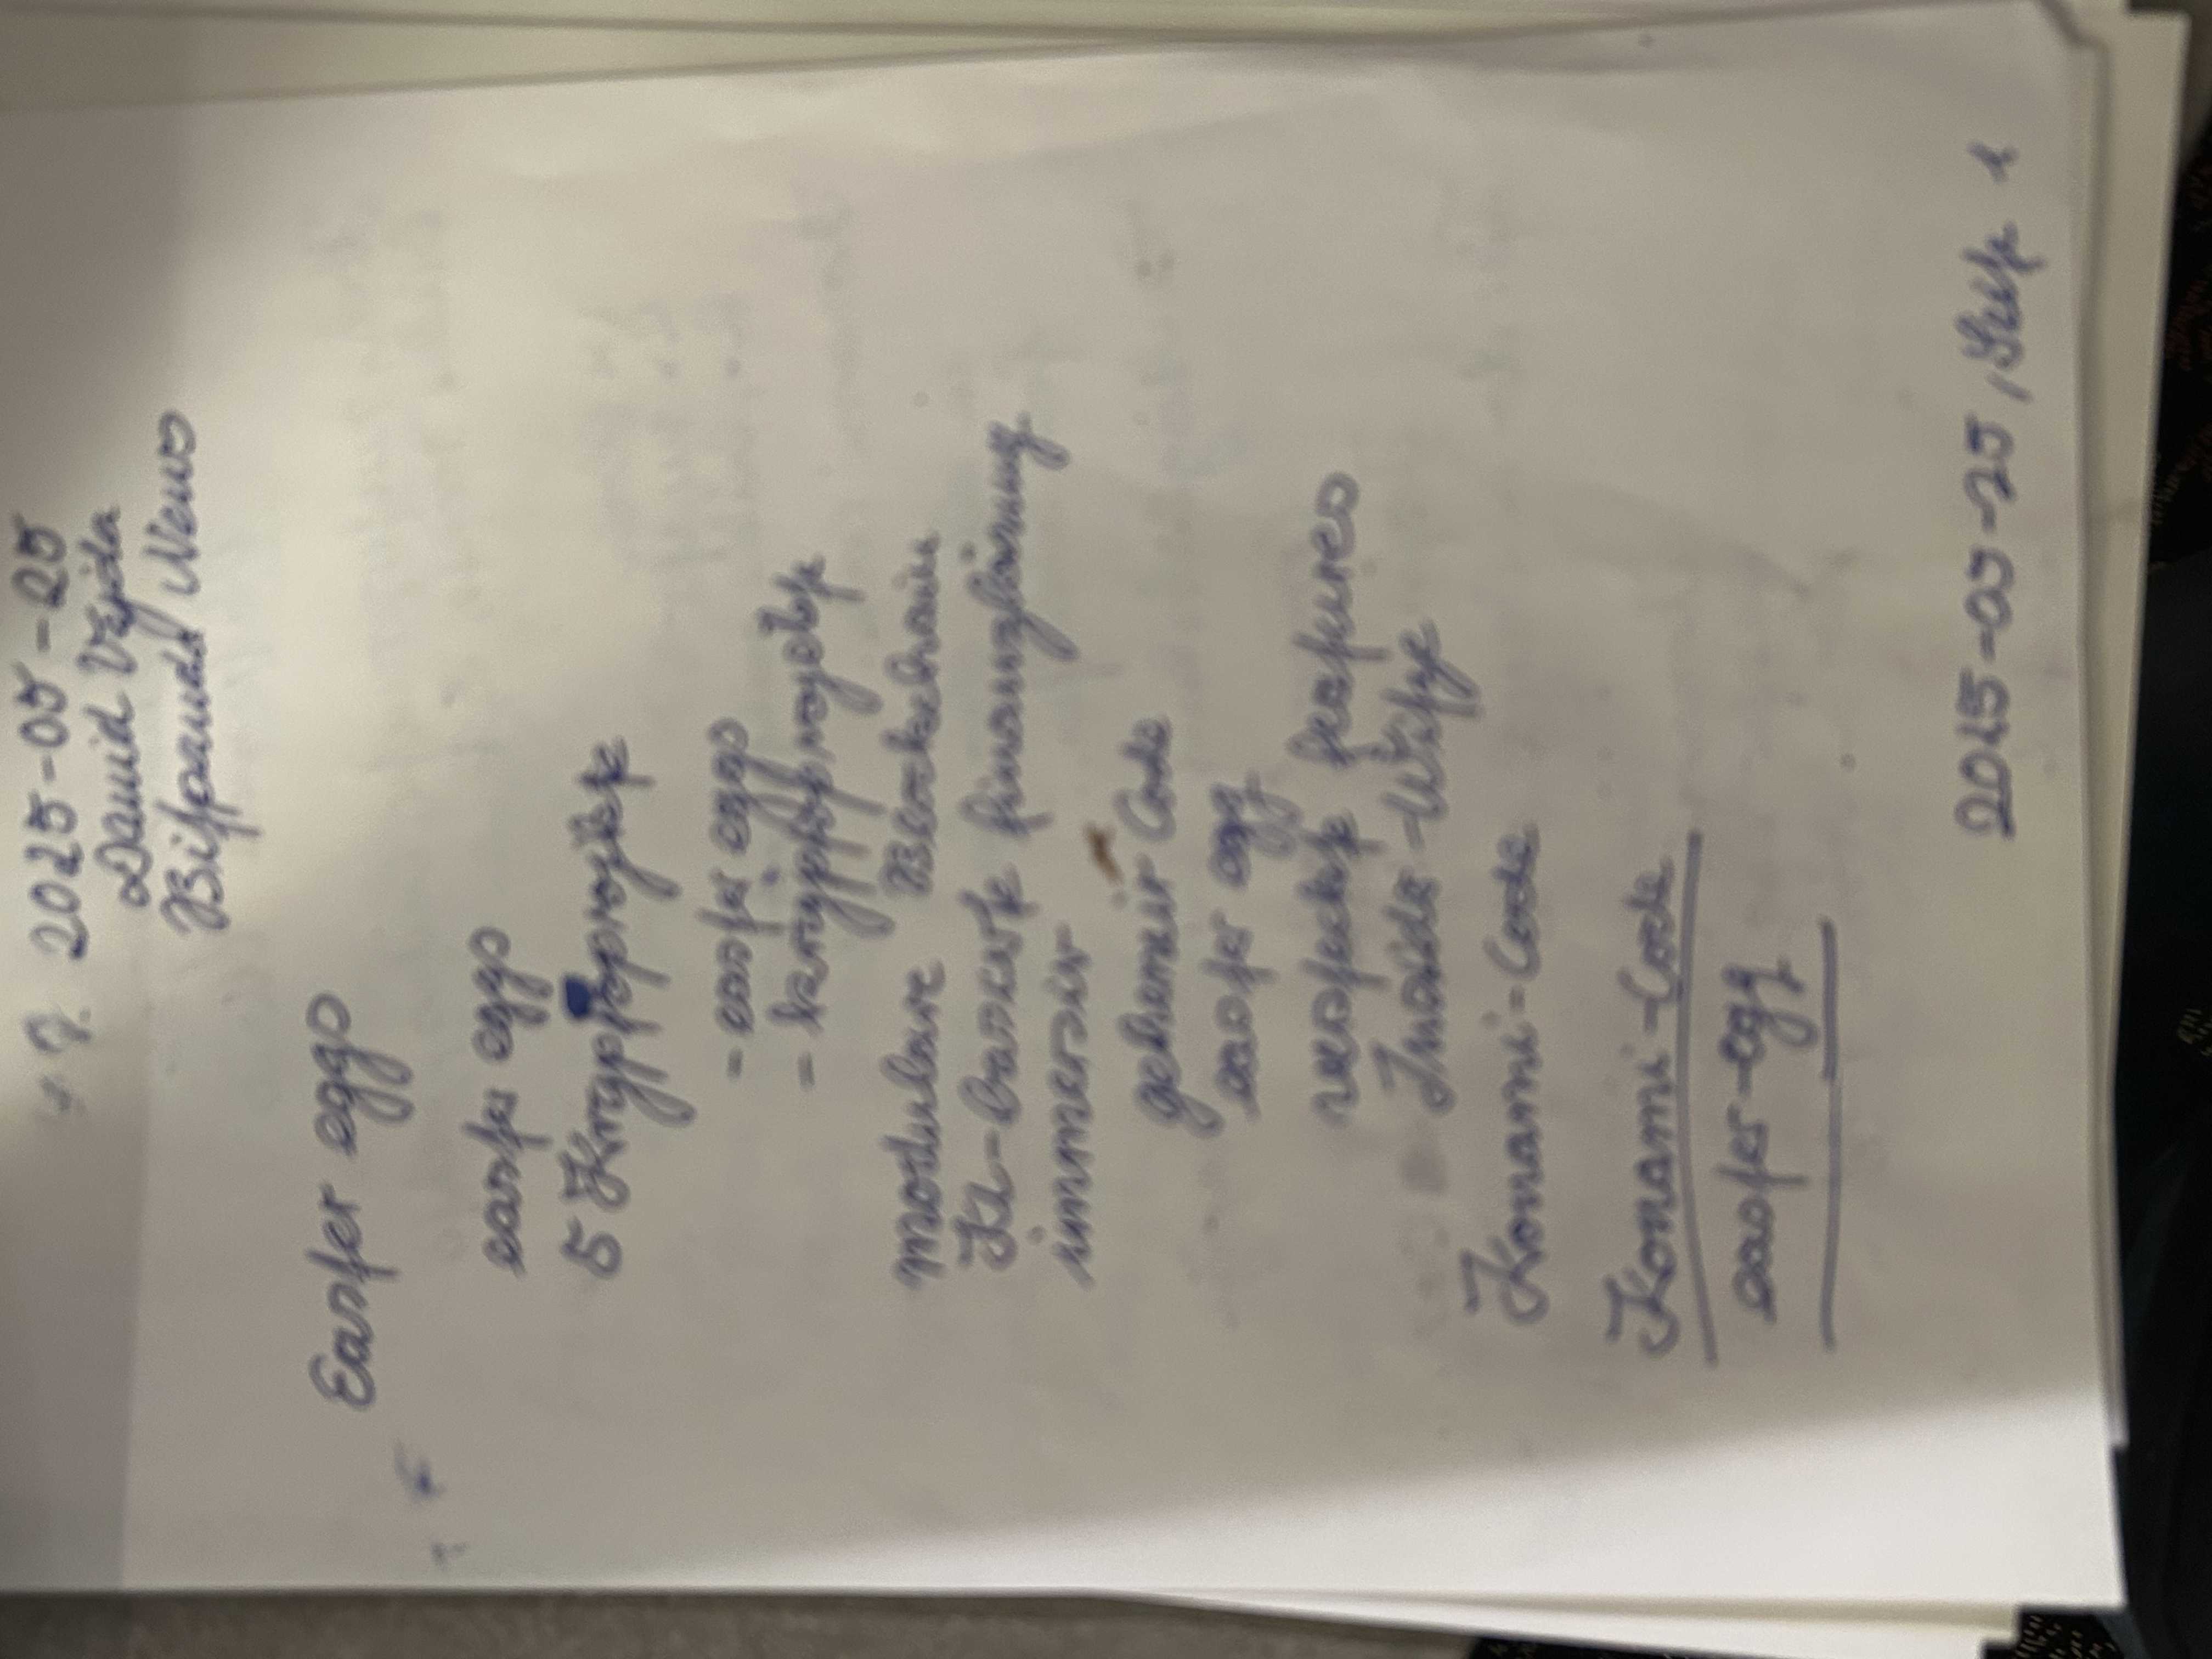 2025-05-25
David Vajda
Bitpanda News
Easter eggs
easter eggs
5 Kryptoprojekte
- easter eggs
- kryptoprojekte
modulare Blockchain
KI-basierte finanzplanung
immersive
geheimer Code
easter egg
versteckte features
Insider-Witze
Konami-Code
Konami-Code
easter-egg
2025-05-25, Seite 1